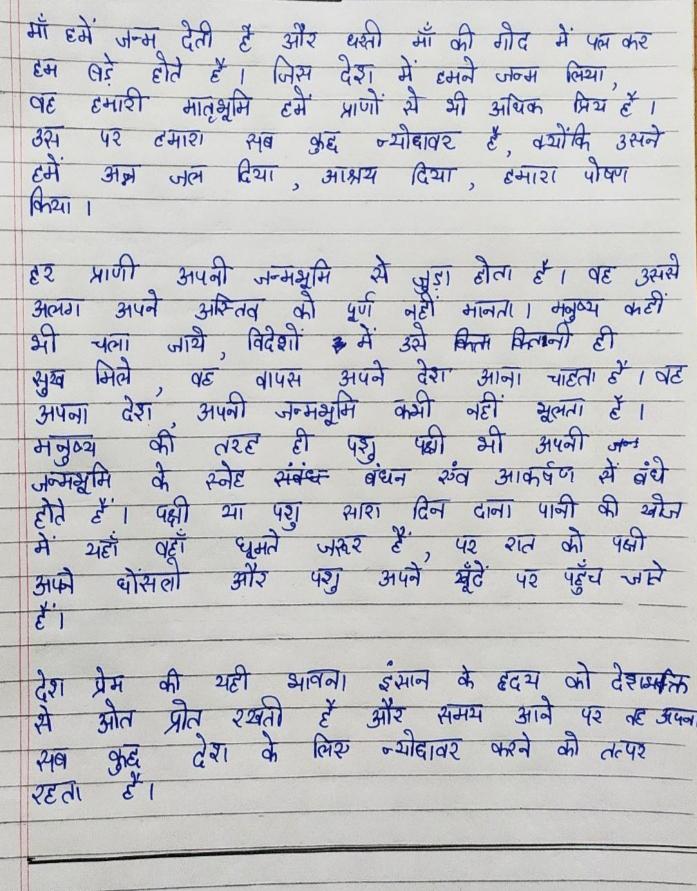 माँ हमें जन्म देती है और धरती माँ की गोद में पल कर
हम बड़े होते है । जिस देश में हमने जन्म लिया,
वह हमारी मातृभूमि हमें प्राणों से भी अधिक प्रिय है ।
उस पर हमारा सब कुछ न्योछावर है, क्योंकि उसने
हमें अन्न जल दिया, आश्रय दिया, हमारा पोषण
किया ।
हर प्राणी अपनी जन्मभूमि से जुड़ा होता है । वह उससे
अलग अपने अस्तित्व को पूर्ण नहीं मानता । मनुष्य कहीं
भी चला जाये, विदेशों में उसे कितनी ही
सुख मिले, वह वापस अपने देश आना चाहता है । वह
अपना देश, अपनी जन्मभूमि कभी नहीं भूलता है ।
मनुष्य की तरह ही पशु पक्षी भी अपनी जन्म
जन्मभूमि के स्नेह संबंध बंधन एंव आकर्षण सें बंधे
होते हैं । पक्षी या पशु सारा दिन दाना पानी की खोज
में यहाँ वहाँ घूमते जरूर हैं, पर रात को पक्षी
अपने घोंसलो और पशु अपने खूँटें पर पहुँच जाते
हैं ।
देश प्रेम की यही भावना इंसान के हृदय को देशभक्ति
से ओत प्रोत रखती है और समय आने पर वह अपना
सब कुछ देश के लिए न्योछावर करने को तत्पर
रहता है ।